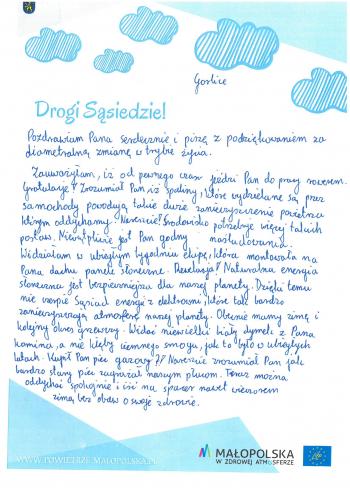 Gorlice
Drogi Sąsiedzie!
Pozdrawiam Pana serdecznie i piszę z podziękowaniem za
diametralną zmianę w trybie życia.
Zauważyłam, iż od pewnego czasu jeździ Pan do pracy rowerem.
Gratuluję! Zrozumiał Pan iż spaliny, które wydzielane są przez
samochody powodują także duże zanieczyszczenie powietrza
którym oddychamy. Nareszcie! Środowisko potrzebuje więcej takich
postaw. Niewątpliwie jest Pan godny naśladowania.
Widziałam w ubiegłym tygodniu ekipę, która montowała na
Pana dachu panele słoneczne. Rewelacja! Naturalna energia
słoneczna jest bezpieczniejsza dla naszej planety. Dzięki temu
nie czerpie Sąsiad energii z elektrowni, które tak bardzo
zanieczyszczają atmosferę naszej planety. Obecnie mamy zimę i
kolejny okres grzewczy. Widać niewielki biały dymek z Pana
komina, a nie kłęby ciemnego smogu, jak to było w ubiegłych
latach. Kupił Pan piec gazowy?! Nareszcie zrozumiał Pan jak
bardzo stary piec zagrażał naszym płucom. Teraz można
oddychać spokojnie i iść na spacer nawet wieczorem
zimą bez obaw o swoje zdrowie.
WWW.POWIETRZE.MALOPOLSKA.PL
MAŁOPOLSKA
W ZDROWEJ ATMOSFERZE